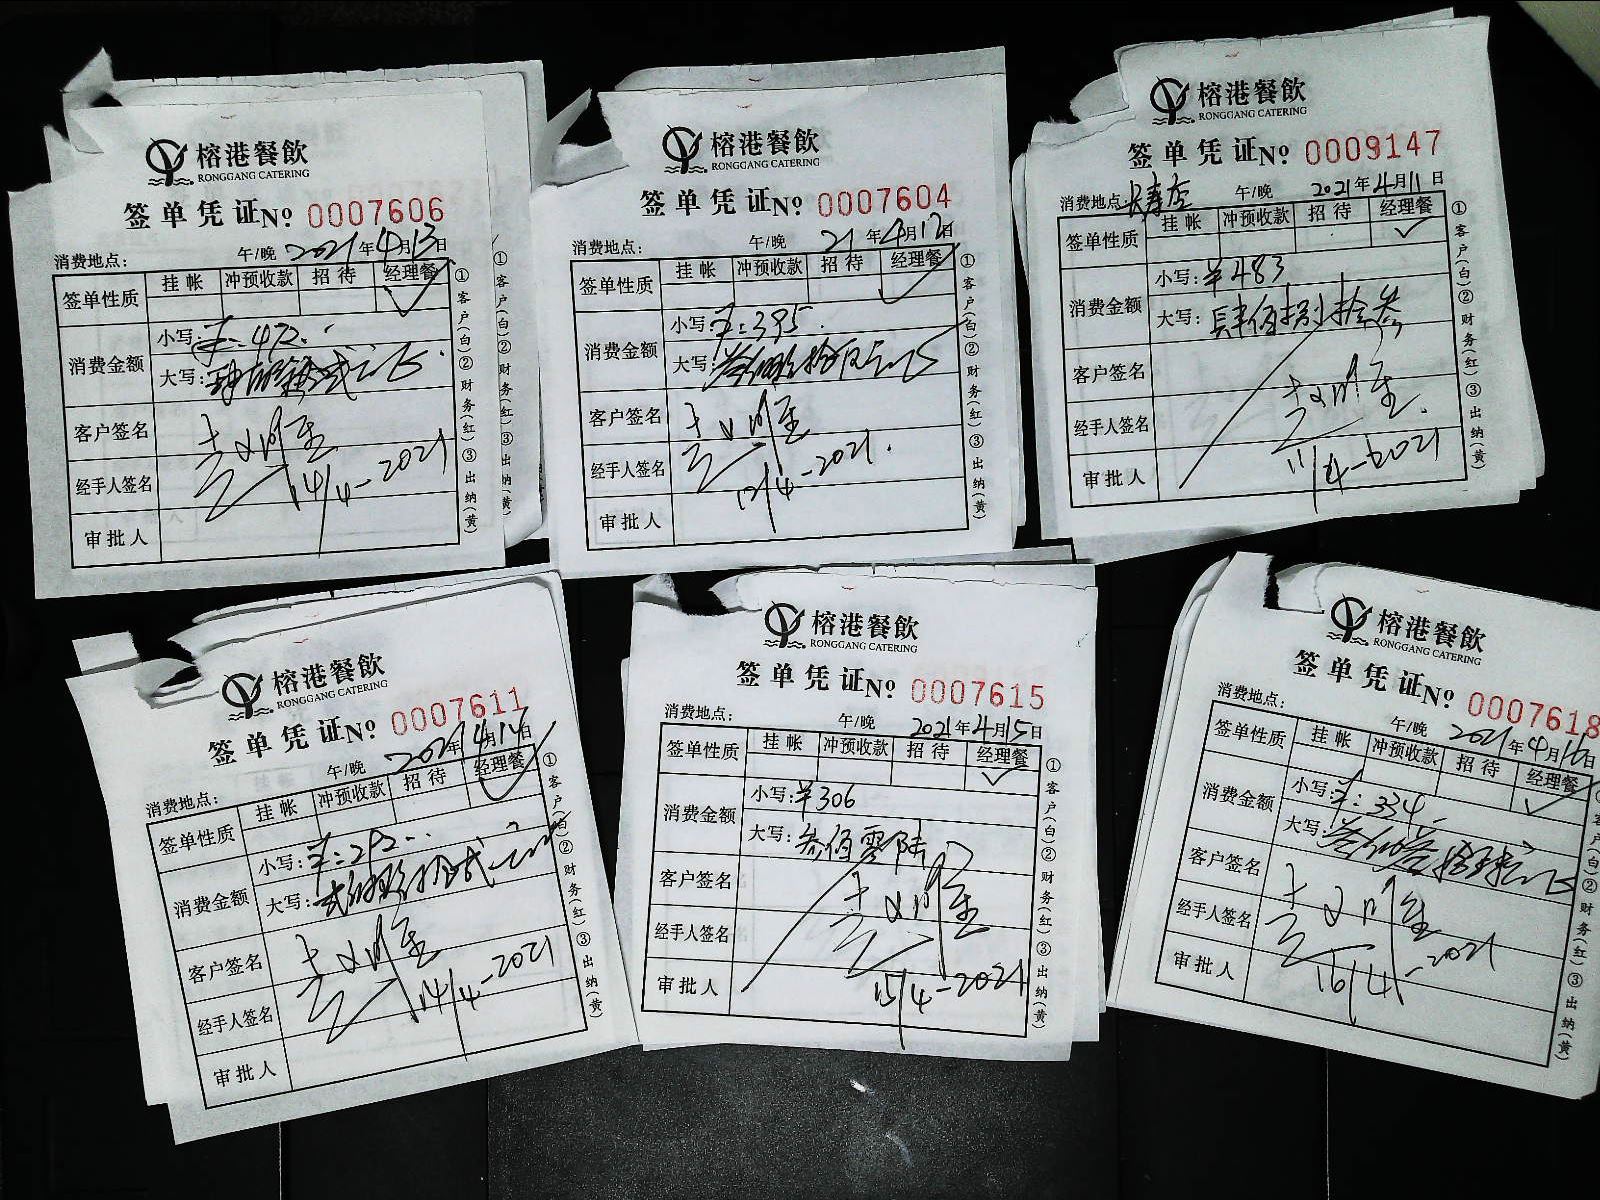 榕港餐飲
RONGGANG CATERING
签单凭证 № 0007606
消费地点： 午/晚 2021年4月13日
签单性质 挂帐 冲预收款 招待 经理餐
✓
消费金额 小写：¥：472.
大写：
客户签名
经手人签名 14/4-2021
审批人
①客户(白)②财务(红)③出纳(黄)
榕港餐飲
RONGGANG CATERING
签单凭证 № 0007604
消费地点： 午/晚 21年4月12日
签单性质 挂帐 冲预收款 招待 经理餐
✓
消费金额 小写：¥：395.
大写：
客户签名
经手人签名 12/4-2021.
审批人
①客户(白)②财务(红)③出纳(黄)
榕港餐飲
RONGGANG CATERING
签单凭证 № 0009147
消费地点 长寿店 午/晚 2021年4月11日
签单性质 挂帐 冲预收款 招待 经理餐
✓
消费金额 小写：¥483
大写：肆佰捌拾叁
客户签名
经手人签名 11/4-2021
审批人
①客户(白)②财务(红)③出纳(黄)
榕港餐飲
RONGGANG CATERING
签单凭证 № 0007611
消费地点： 午/晚 2021年4月14日
签单性质 挂帐 冲预收款 招待 经理餐
✓
消费金额 小写：¥：292.
大写：
客户签名
经手人签名 14/4-2021
审批人
①客户(白)②财务(红)③出纳(黄)
榕港餐飲
RONGGANG CATERING
签单凭证 № 0007615
消费地点： 午/晚 2021年4月15日
签单性质 挂帐 冲预收款 招待 经理餐
✓
消费金额 小写：¥306
大写：叁佰零陆
客户签名
经手人签名
审批人 15/4-2021
①客户(白)②财务(红)③出纳(黄)
榕港餐飲
RONGGANG CATERING
签单凭证 № 0007618
消费地点： 午/晚 2021年4月16日
签单性质 挂帐 冲预收款 招待 经理餐
✓
消费金额 小写：¥：334.
大写：
客户签名
经手人签名 16/4-2021
审批人
客户(白)②财务(红)③出纳(黄)